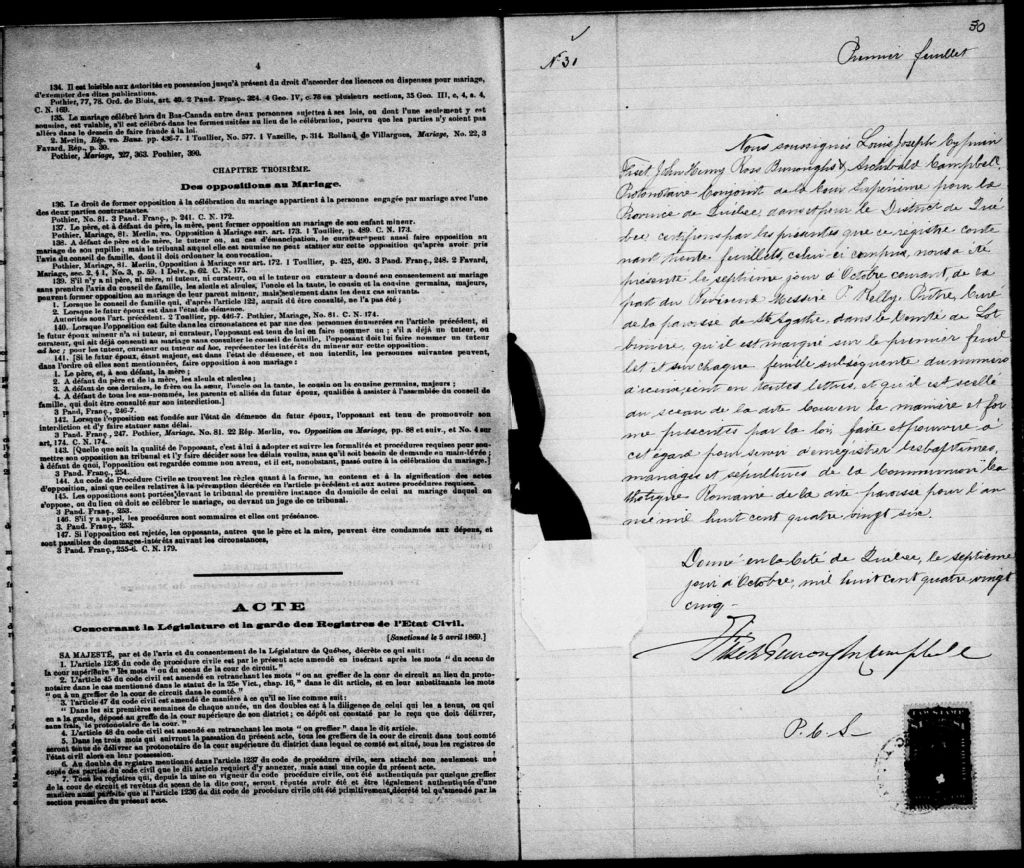 4
134. Il est loisible aux autorités en possession jusqu'à présent du droit d'accorder des licences ou dispenses pour mariage,
d'exempter des dites publications.
Pothier, 77, 78. Ord. de Blois, art. 40. 2 Pand. Franç., 324. 4 Geo. IV, c. 78 en plusieurs sections, 35 Geo. III, c, 4, s. 4,
C. N. 169.
135. Le mariage célébré hors du Bas-Canada entre deux personnes sujettes à ses lois, ou dont l'une seulement y est
soumise, est valable, s'il est célébré dans les formes usitées au lieu de la célébration, pourvu que les parties n'y soient pas
allées dans le dessein de faire fraude à la loi.
2. Merlin, Rép. vo. Bans. pp. 436-7. 1 Toullier, No. 577. 1 Vazeille, p. 314. Rolland de Villargues, Mariage, No. 22, 3
Favard, Rép., p. 39.
Pothier, Mariage, 227, 363. Pouhier, 390.
CHAPITRE TROISIÈME.
Des oppositions au Mariage.
136. Le droit de former opposition à la célébration du mariage appartient à la personne engagée par mariage avec l'une
des deux parties contractantes.
Pothier, No. 81. 3 Pand. Franç., p. 241. C. N. 172.
137. Le père, et à défaut de père, la mère, peut former opposition au mariage de son enfant mineur.
Pothier, Mariage, 81. Merlin, vo. Opposition à Mariage sur. art. 173. 1 Toullier, p. 489. C. N. 173.
138. A défaut de père et de mère, le tuteur ou, au cas d'émancipation, le curateur peut aussi faire opposition au
mariage de son pupille; mais le tribunal auquel elle est soumise ne peut statuer sur cette opposition qu'après avoir pris
l'avis du conseil de famille, dont il doit ordonner la convocation.
Pothier, Mariage, 81. Merlin, Opposition à Mariage sur art. 172. 1 Toullier, p. 425, 490. 3 Pand. Franç., 248. 2 Favard,
Mariage, sec. 2, § 1, No. 3, p. 59. 1 Delv. p. 62. C. N. 175.
139. S'il n'y a ni père, ni mère, ni tuteur, ni curateur, ou si le tuteur ou curateur a donné son consentement au mariage
sans prendre l'avis du conseil de famille, les aïeuls et aïeules, l'oncle et la tante, le cousin et la cousine germains, majeurs,
peuvent former opposition au mariage de leur parent mineur, mais seulement dans les deux cas suivants.
1. Lorsque le conseil de famille qui, d'après l'article 122, aurait dû être consulté, ne l'a pas été;
2. Lorsque le futur époux est dans l'état de démence.
Autorités sous l'art. précédent. 2 Toullier, pp. 446-7. Pothier, Mariage, No. 81. C. N. 174.
140. Lorsque l'opposition est faite dans les circonstances et par une des personnes énumérées en l'article précédent, si
le futur époux mineur n'a ni tuteur, ni curateur, l'opposant est tenu de lui en faire nommer un; s'il a déjà un tuteur, ou
curateur, qui ait déjà consenti au mariage sans consulter le conseil de famille, l'opposant doit lui faire nommer un tuteur
ad hoc; pour les tuteur, curateur ou tuteur ad hoc, représenter les intérêts du mineur sur cette opposition.
141. [Si le futur époux, étant majeur, est dans l'état de démence, et non interdit, les personnes suivantes peuvent,
dans l'ordre où elles sont mentionnées, faire opposition à son mariage:
1. Le père, et, à son défaut, la mère;
2. A défaut du père et de la mère, les aïeuls et aïeules;
3. A défaut de ces derniers, le frère ou la sœur, l'oncle ou la tante, le cousin ou la cousine germains, majeurs;
4. A défaut de tous les sus-nommés, les parents et alliés du futur époux, qualifiés à assister à l'assemblée du conseil de
famille, qui doit être consulté sur son interdiction.]
3 Pand. Franç., 246-7.
142. Lorsque l'opposition est fondée sur l'état de démence du futur époux, l'opposant est tenu de promouvoir son
interdiction et d'y faire statuer sans délai.
3 Pand. Franç., 247. Pothier, Mariage. No. 81. 22 Rép. Merlin, vo. Opposition au Mariage, pp. 88 et suiv., et No. 4 sur
art, 174. C. N. 174.
143. [Quelle que soit la qualité de l'opposant, c'est à lui à adopter et suivre les formalités et procédures requises pour sou-
mettre son opposition au tribunal et l'y faire décider sous les délais voulus, sans qu'il soit besoin de demande en main-lévée;
à défaut de quoi, l'opposition est regardée comme non avenu, et il est, nonobstant, passé outre à la célébration du mariage.]
3 Pand. Franç., 254.
144. Au code de Procédure Civile se trouvent les règles quant à la forme, au contenu et à la signification des actes
d'opposition, ainsi que celles relatives à la péremption décrétée en l'article précédent et aux autres procédures requises.
145. Les oppositions sont portées devant le tribunal de première instance du domicile de celui au mariage duquel on
s'oppose, ou du lieu où doit se célébrer le mariage, ou devant un juge de ce tribunal.
3 Pand. Franç., 253.
146. S'il y a appel, les procédures sont sommaires et elles ont préséance.
3. Pand. Franç., 253.
147. Si l'opposition est rejetée, les opposants, autres que le père et la mère, peuvent être condamnés aux dépens, et
sont passibles de dommages-intérêts suivant les circonstances,
3 Pand. Franç., 255-6. C. N. 179.
ACTE
Concernant la Législature et la garde des Registres de l'Etat Civil.
[Sanctionné le 5 avril 1869.]
SA MAJESTÉ, par et de l'avis et du consentement de la Législature de Québec, décrète ce qui suit:
1. L'article 1236 du code de procédure civile est par le présent acte amendé en insérant après les mots "du sceau de
la cour supérieure" les mots "ou du sceau de la cour de circuit."
2. L'article 45 du code civil est amendé en retranchant les mots "ou au greffe de la cour de circuit au lieu du proto-
notaire dans le cas mentionné dans le statut de la 25e Vict., chap. 16," dans le dit article, et en leur substituants les mots
"ou à un greffier de la cour de circuit dans le comté."
3. l'article 47 du code civil est amendé de manière à ce qu'il se lise comme suit:
"Dans les six premières semaines de chaque année, un des doubles est à la diligence de celui qui les a tenus, ou qui
en a la garde, déposé au greffe de la cour supérieure de son district; ce dépôt est constaté par le reçu que doit délivrer,
sans frais, le protonotaire de la cour."
4. L'article 48 du code civil est amendé en retranchant les mots "ou greffier" dans le dit article.
5. Dans les trois mois qui suivront la passation du présent acte, tous les greffiers de la cour de circuit dans tout comté
seront tenus de délivrer au protonotaire de la cour supérieure du district dans lequel ce comté est situé, tous les registres de
l'état civil alors en leur possession.
6. Au double du registre mentionné dans l'article 1237 du code de procédure civile, sera attaché non seulement une
copie des parties du code civil que le dit article requiert d'y annexer, mais aussi une copie du présent acte.
7. Tous les registres qui, depuis la mise en vigueur du code procédure civile, ont été authentiqués par quelque greffier
de la cour de circuit et revêtus du sceau de la dite cour, seront réputés avoir été et être légalement authentiqués d'une
manière aussi parfaite que si l'article 1236 du dit code de procédure civile eût été primitivement décrété tel qu'amendé par la
section première du présent acte.
50
No 31
Premier feuillet
Nous soussignés Louis Joseph Cyprien
Fiset, John Henry Ross Burroughs & Archibald Campbell
Protonotaire Conjoint de la Cour Supérieure pour la
Province de Québec, dans et pour le District de Qué
bec certifions par les présentes que ce registre conte
nant trente feuillets, celui-ci compris, nous a été
présenté le septième jour d'Octobre courant, de la
part du Révérend Messire P. Kelly, Prêtre, Curé
de la paroisse de Ste Agathe, dans le Comté de Lot
binière, qu'il est marqué sur le premier feuil
let et sur chaque feuille subséquente du numéro
d'icelui, sent en toutes lettres, et qu'il est scellé
du sceau de la dite Cour en la manière et for
me prescrites par la loi faite et pourvue à
cet égard pour servir à enregistrer les baptêmes,
mariages et sépultures de la Communion Ca
tholique Romaine de la dite paroisse pour l'an
née mil huit cent quatre vingt six.
Donné en la Cité de Québec, le septième
jour d'Octobre, mil huit cent quatre vingt
cinq -
Fiset Burroughs Campbell
P. C. S